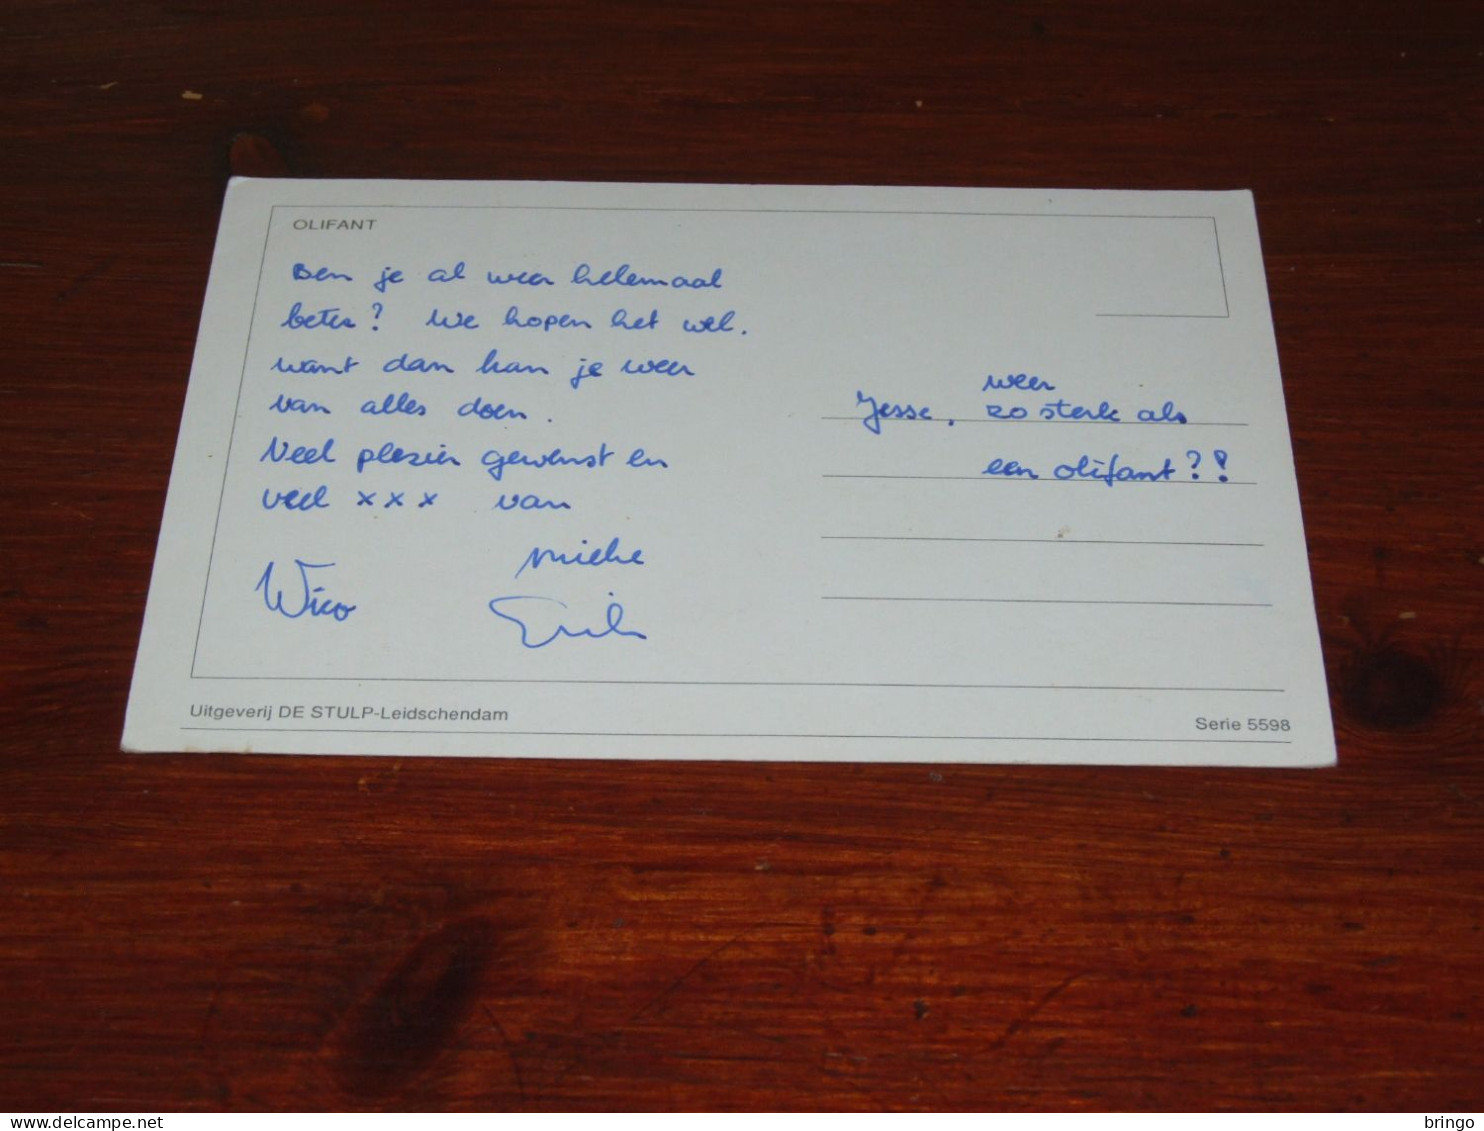 OLIFANT
Ben je al weer helemaal
beter? We hopen het wel.
want dan kan je weer
van alles doen.
Veel plezier gewenst en
veel x x x van
mieke
Wico
Erik
weer
Jesse, zo sterk als
een olifant?!
Uitgeverij DE STULP-Leidschendam
Serie 5598
https://www.delcampe.net
bringo